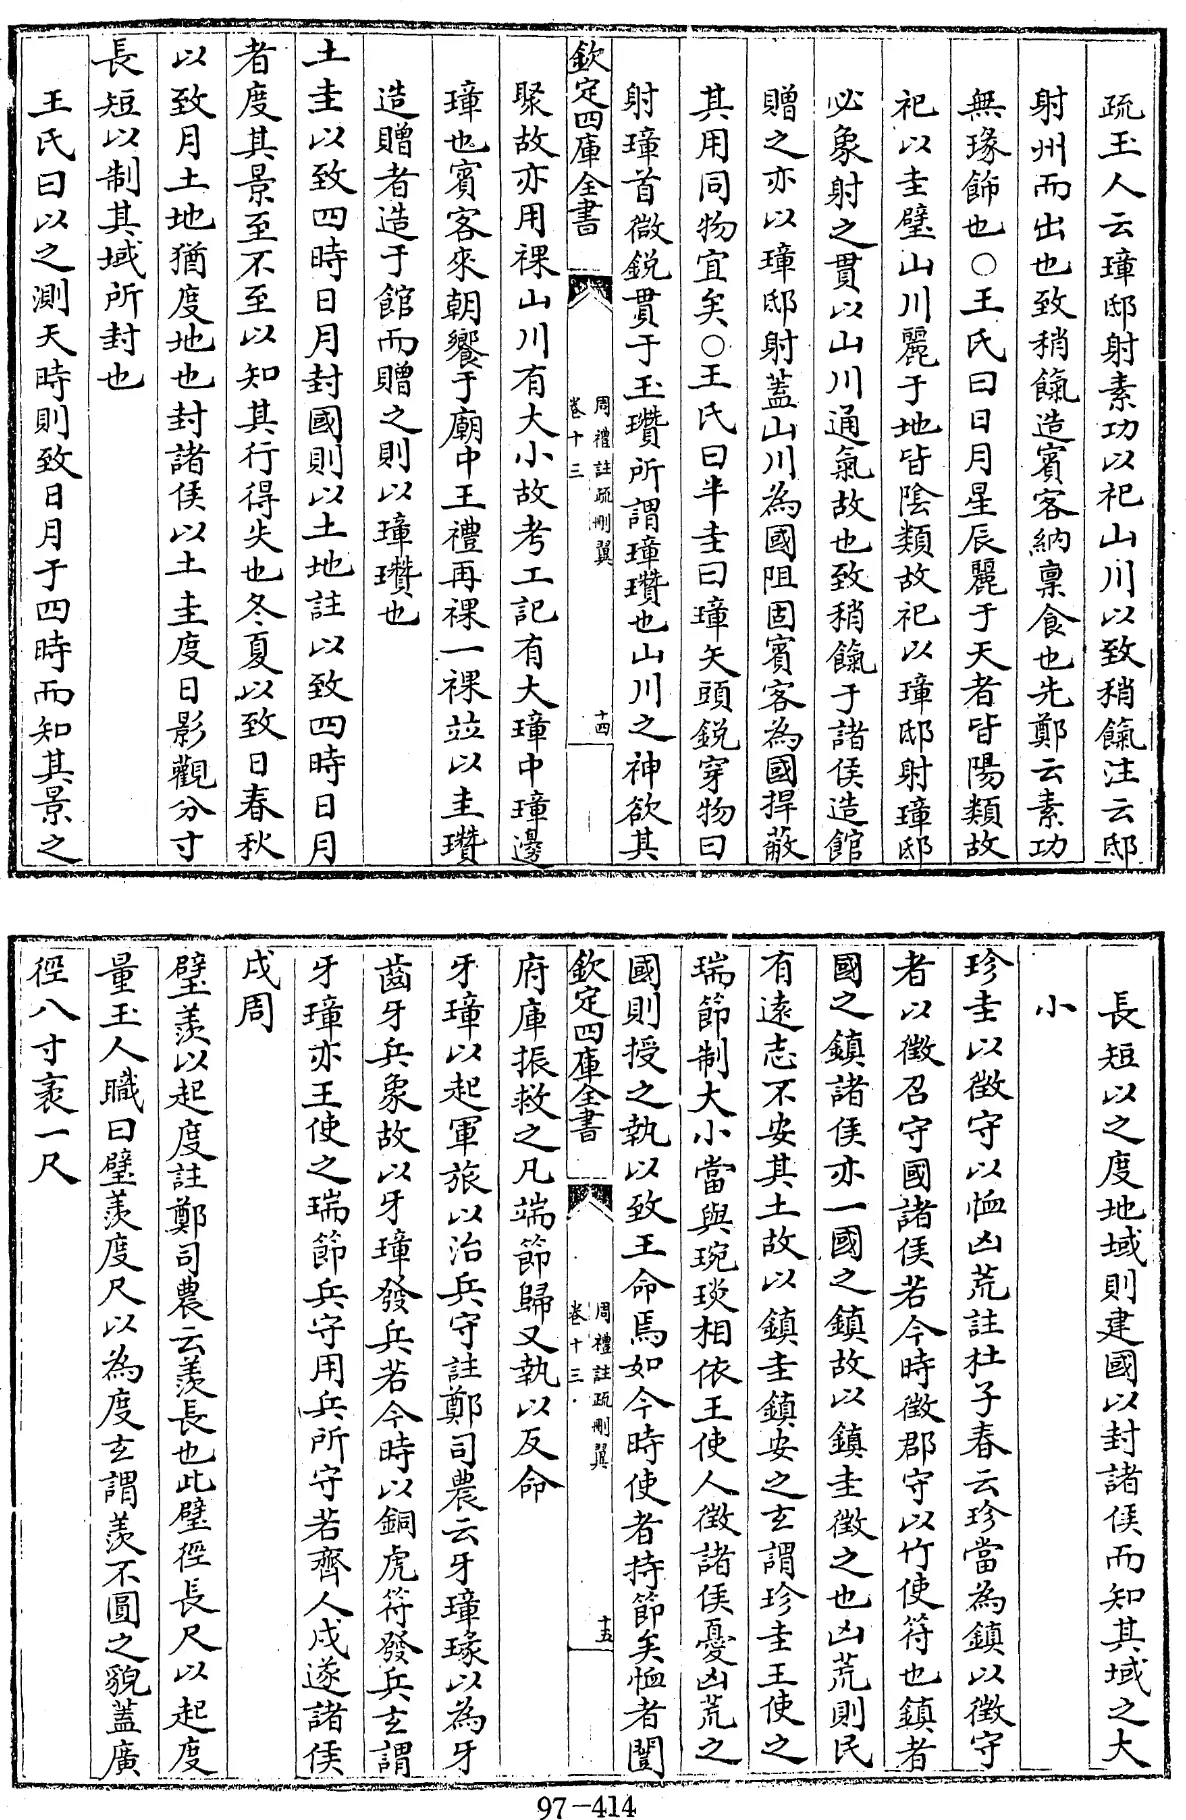 疏玉人云璋邸射素功以祀山川以致稍餼注云邸
射州而出也致稍餼造賓客納稟食也先鄭云素功
無瑑飾也○王氏曰日月星辰麗于天者皆陽類故
祀以圭璧山川麗于地皆陰類故祀以璋邸射璋邸
必象射之貫以山川通氣故也致稍餼于諸侯造館
贈之亦以璋邸射蓋山川為國阻固賓客為國捍蔽
其用同物宜矣○王氏曰半圭曰璋矢頭鋭穿物曰
射璋首微鋭貫于玉瓚所謂璋瓚也山川之神欲其
欽定四庫全書
周禮註疏刪翼
卷十三
十四
聚故亦用祼山川有大小故考工記有大璋中璋邊
璋也賓客來朝饗于廟中王禮再祼一祼竝以圭瓚
造贈者造于館而贈之則以璋瓚也
土圭以致四時日月封國則以土地註以致四時日月
者度其景至不至以知其行得失也冬夏以致日春秋
以致月土地猶度地也封諸侯以土圭度日影觀分寸
長短以制其域所封也
王氏曰以之測天時則致日月于四時而知其景之
長短以之度地域則建國以封諸侯而知其域之大
小
珍圭以徵守以恤凶荒註杜子春云珍當為鎮以徵守
者以徵召守國諸侯若今時徵郡守以竹使符也鎮者
國之鎮諸侯亦一國之鎮故以鎮圭徵之也凶荒則民
有遠志不安其土故以鎮圭鎮安之玄謂珍圭王使之
瑞節制大小當與琬琰相依王使人徵諸侯憂凶荒之
國則授之執以致王命焉如今時使者持節矣恤者闓
欽定四庫全書
周禮註疏刪翼
卷十三
十五
府庫振救之凡端節歸又執以反命
牙璋以起軍旅以治兵守註鄭司農云牙璋瑑以為牙
齒牙兵象故以牙璋發兵若今時以銅虎符發兵玄謂
牙璋亦王使之瑞節兵守用兵所守若齊人戍遂諸侯
戍周
璧羨以起度註鄭司農云羨長也此璧徑長尺以起度
量玉人職曰璧羨度尺以為度玄謂羨不圓之貌蓋廣
徑八寸袤一尺
97-414